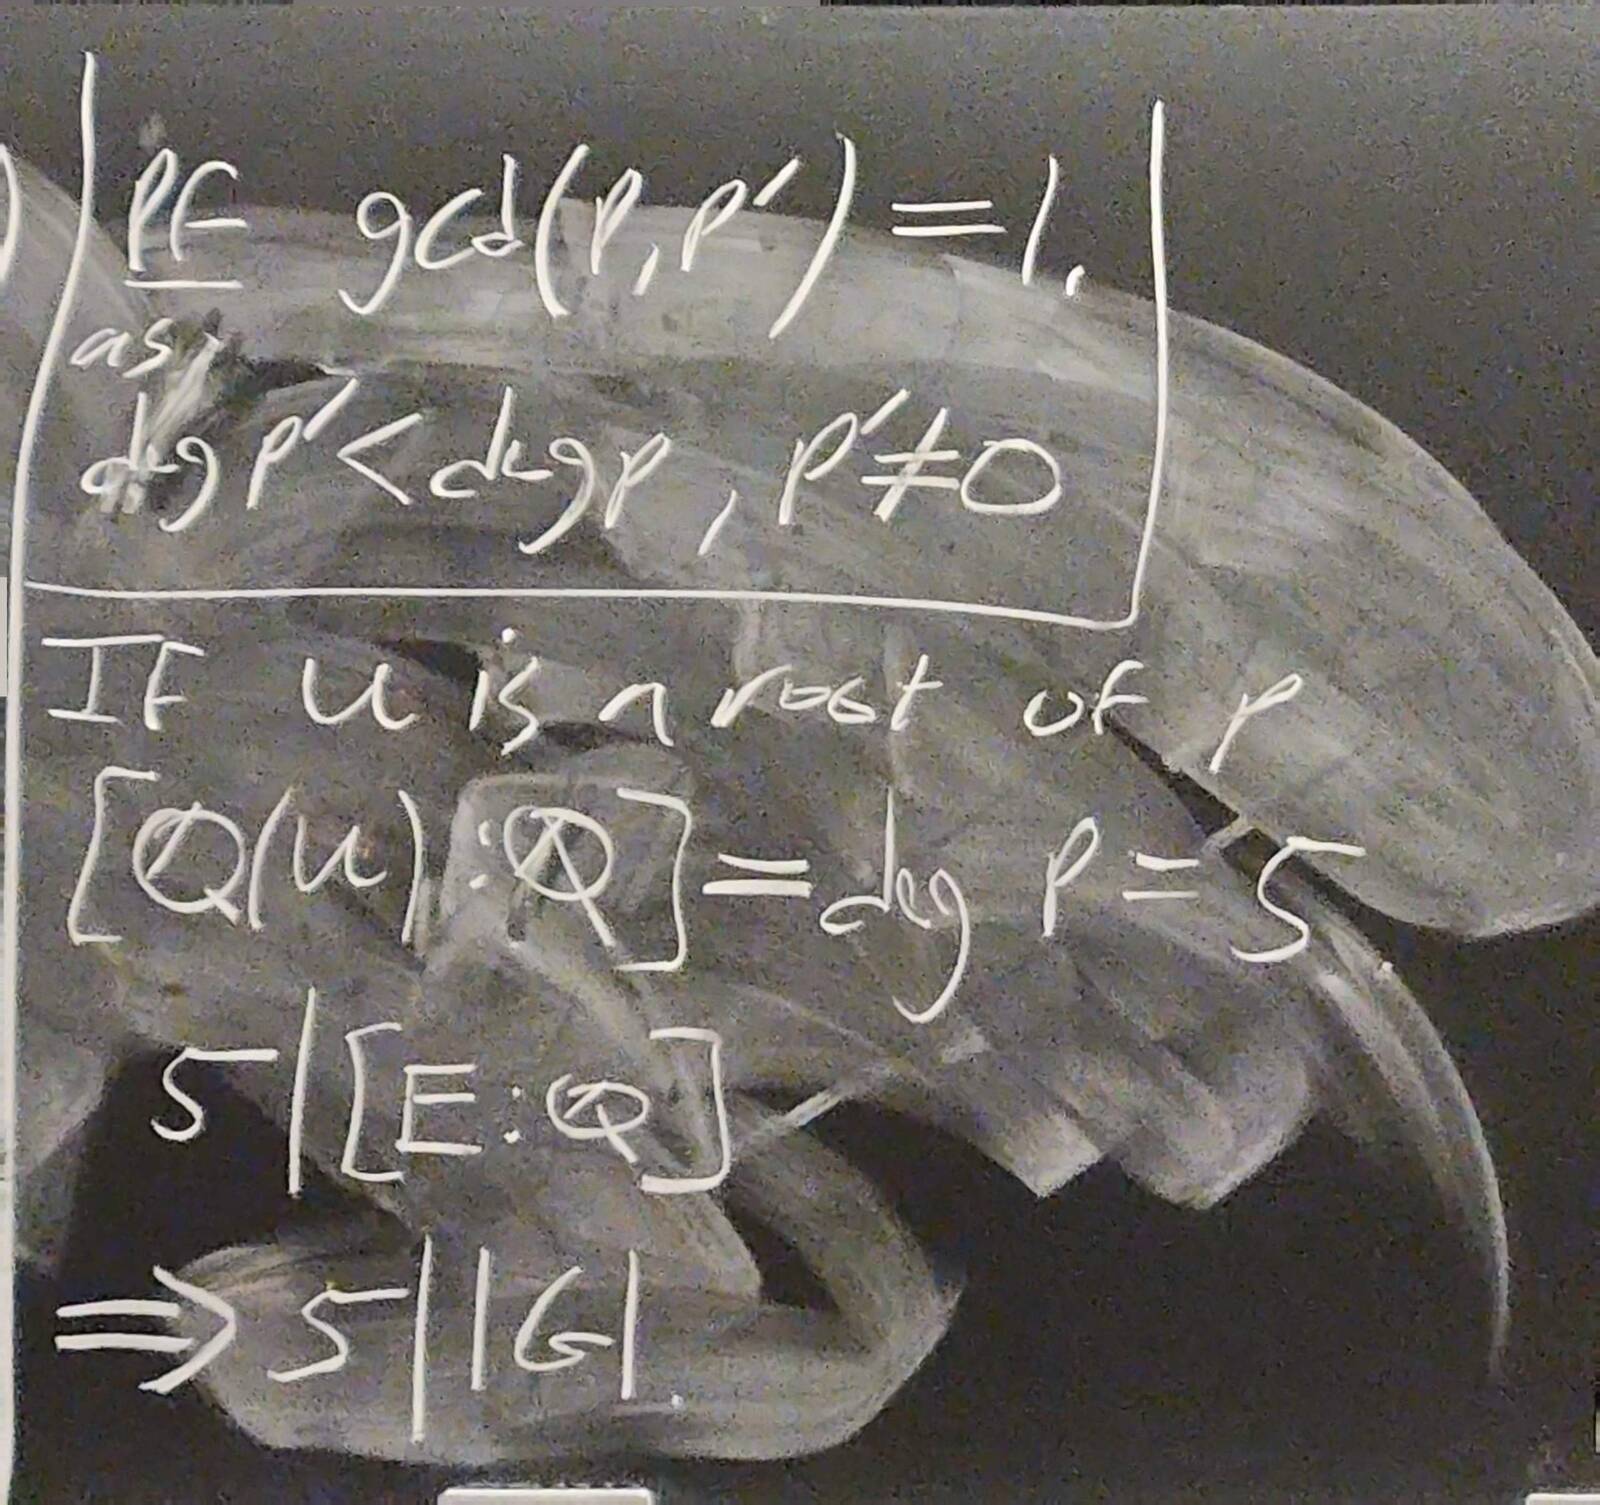 PF gcd(p,p′)=1.
as,
deg p′<deg p, p′≠0
IF u is a root of p
[Q(u):Q]=deg p=5
5|[E:Q]
⇒5||G|.